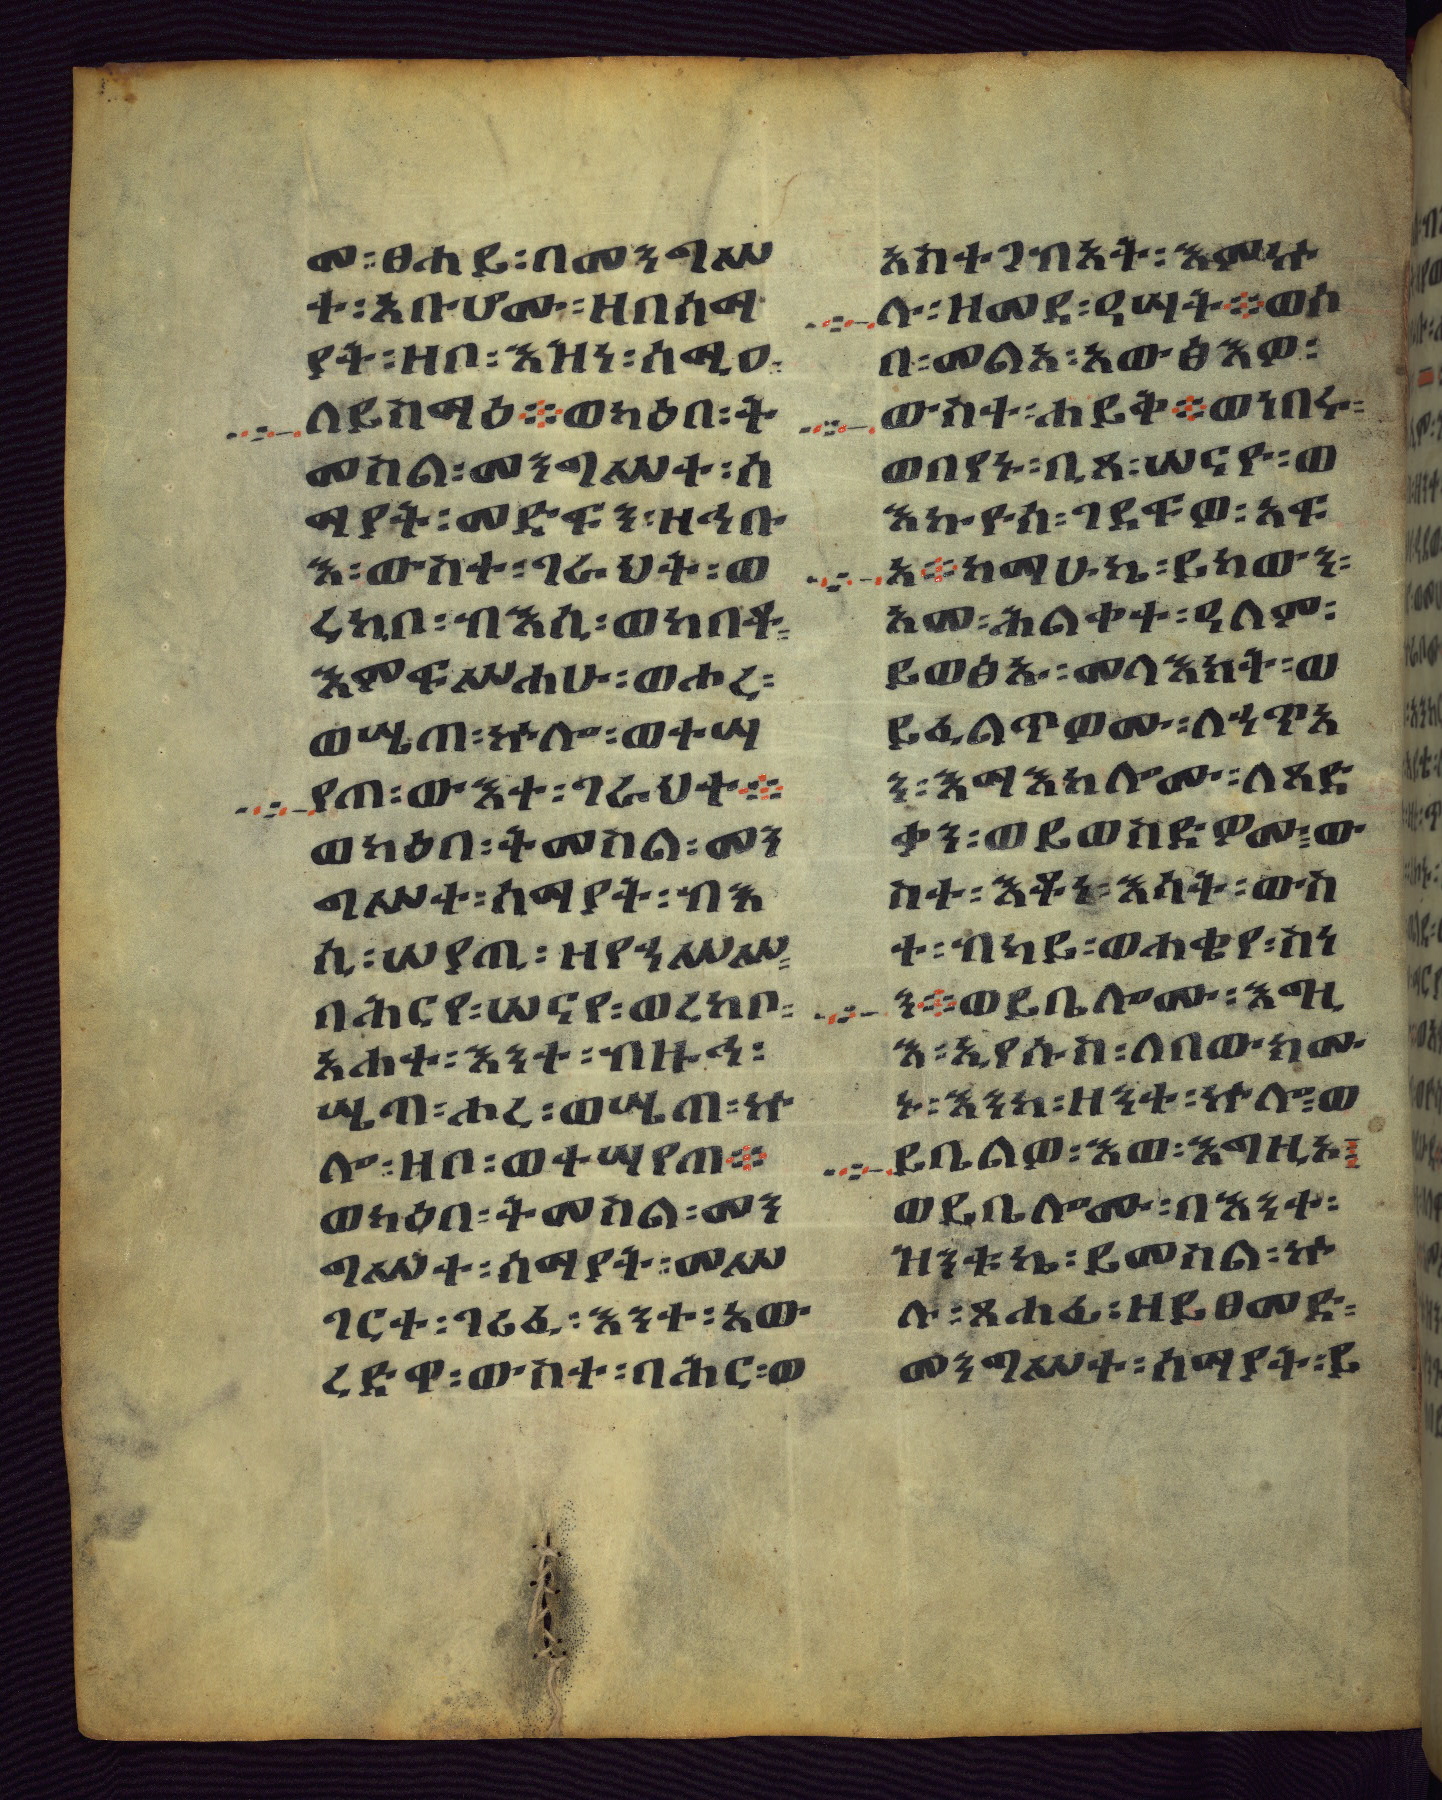 መ፡ፀሐይ፡በመንግሥ
ተ፡አቡሆሙ፡ዘበሰማ
ያት፡ዘቦ፡እዝነ፡ሰሚዐ፡
ለይስማዕ፨ወካዕበ፡ት
መስል፡መንግሥተ፡ሰ
ማያት፡መድፍነ፡ዘኅቡ
እ፡ውስተ፡ገራህት፡ወ
ረኪቦ፡ብእሲ፡ወከበቶ፡
እምፍሥሐሁ፡ወሖረ፡
ወሤጠ፡ኵሎ፡ወተሣ
የጠ፡ውእተ፡ገራህተ፨
ወካዕበ፡ትመስል፡መን
ግሥተ፡ሰማያት፡ብእ
ሲ፡ሠያጢ፡ዘየኀሥሥ፡
ባሕርየ፡ሠናየ፡ወረከቦ፡
አሐተ፡እንተ፡ብዙኅ፡
ሤጣ፡ሖረ፡ወሤጠ፡ኵ
ሎ፡ዘቦ፡ወተሣየጣ፨
ወካዕበ፡ትመስል፡መን
ግሥተ፡ሰማያት፡መሥ
ገርተ፡ገሪፈ፡እንተ፡አው
ረድዋ፡ውስተ፡ባሕር፡ወ
አስተጋብአት፡እምኵ
ሉ፡ዘመደ፡ዓሣት፨ወሶ
በ፡መልአ፡አውፅእዎ፡
ውስተ፡ሐይቅ፨ወነበሩ፡
ወበየኑ፡ቢጸ፡ሠናየ፡ወ
እኩየሰ፡ገደፍዎ፡አፍ
አ፨ከማሁኬ፡ይከውን፡
አመ፡ሕልቀተ፡ዓለም፡
ይወፅኡ፡መላእክት፡ወ
ይፈልጥዎሙ፡ለኃጥአ
ን፡እማእከሎሙ፡ለጻድ
ቃን፡ወይወስድዎሙ፡ው
ስተ፡እቶነ፡እሳት፡ውስ
ተ፡ብካይ፡ወሐቂየ፡ስነ
ን፨ወይቤሎሙ፡እግዚ
እ፡ኢየሱስ፡ለበውክሙ
ኑ፡እንከ፡ዘንተ፡ኵሎ፡ወ
ይቤልዎ፡እወ፡እግዚኦ፡
ወይቤሎሙ፡በእንተ፡
ዝንቱኬ፡ይመስል፡ኵ
ሉ፡ጸሐፊ፡ዘይፀመድ፡
መንግሥተ፡ሰማያት፡ይ